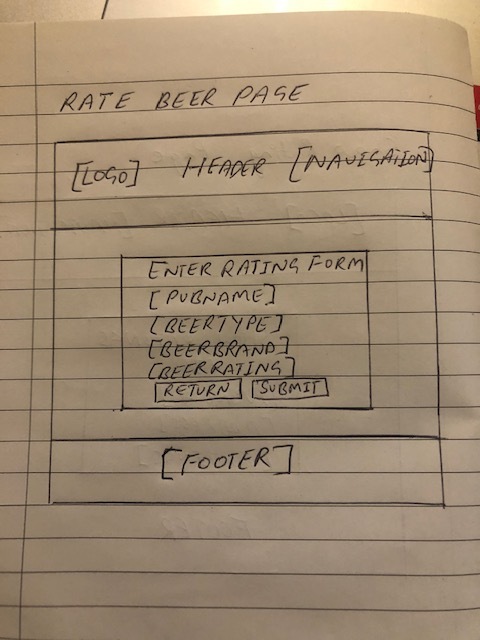 RATE BEER PAGE
[LOGO] HEADER [NAVIGATION]
ENTER RATING FORM
[PUBNAME]
[BEERTYPE]
[BEERBRAND]
[BEERRATING]
RETURN SUBMIT
[FOOTER]